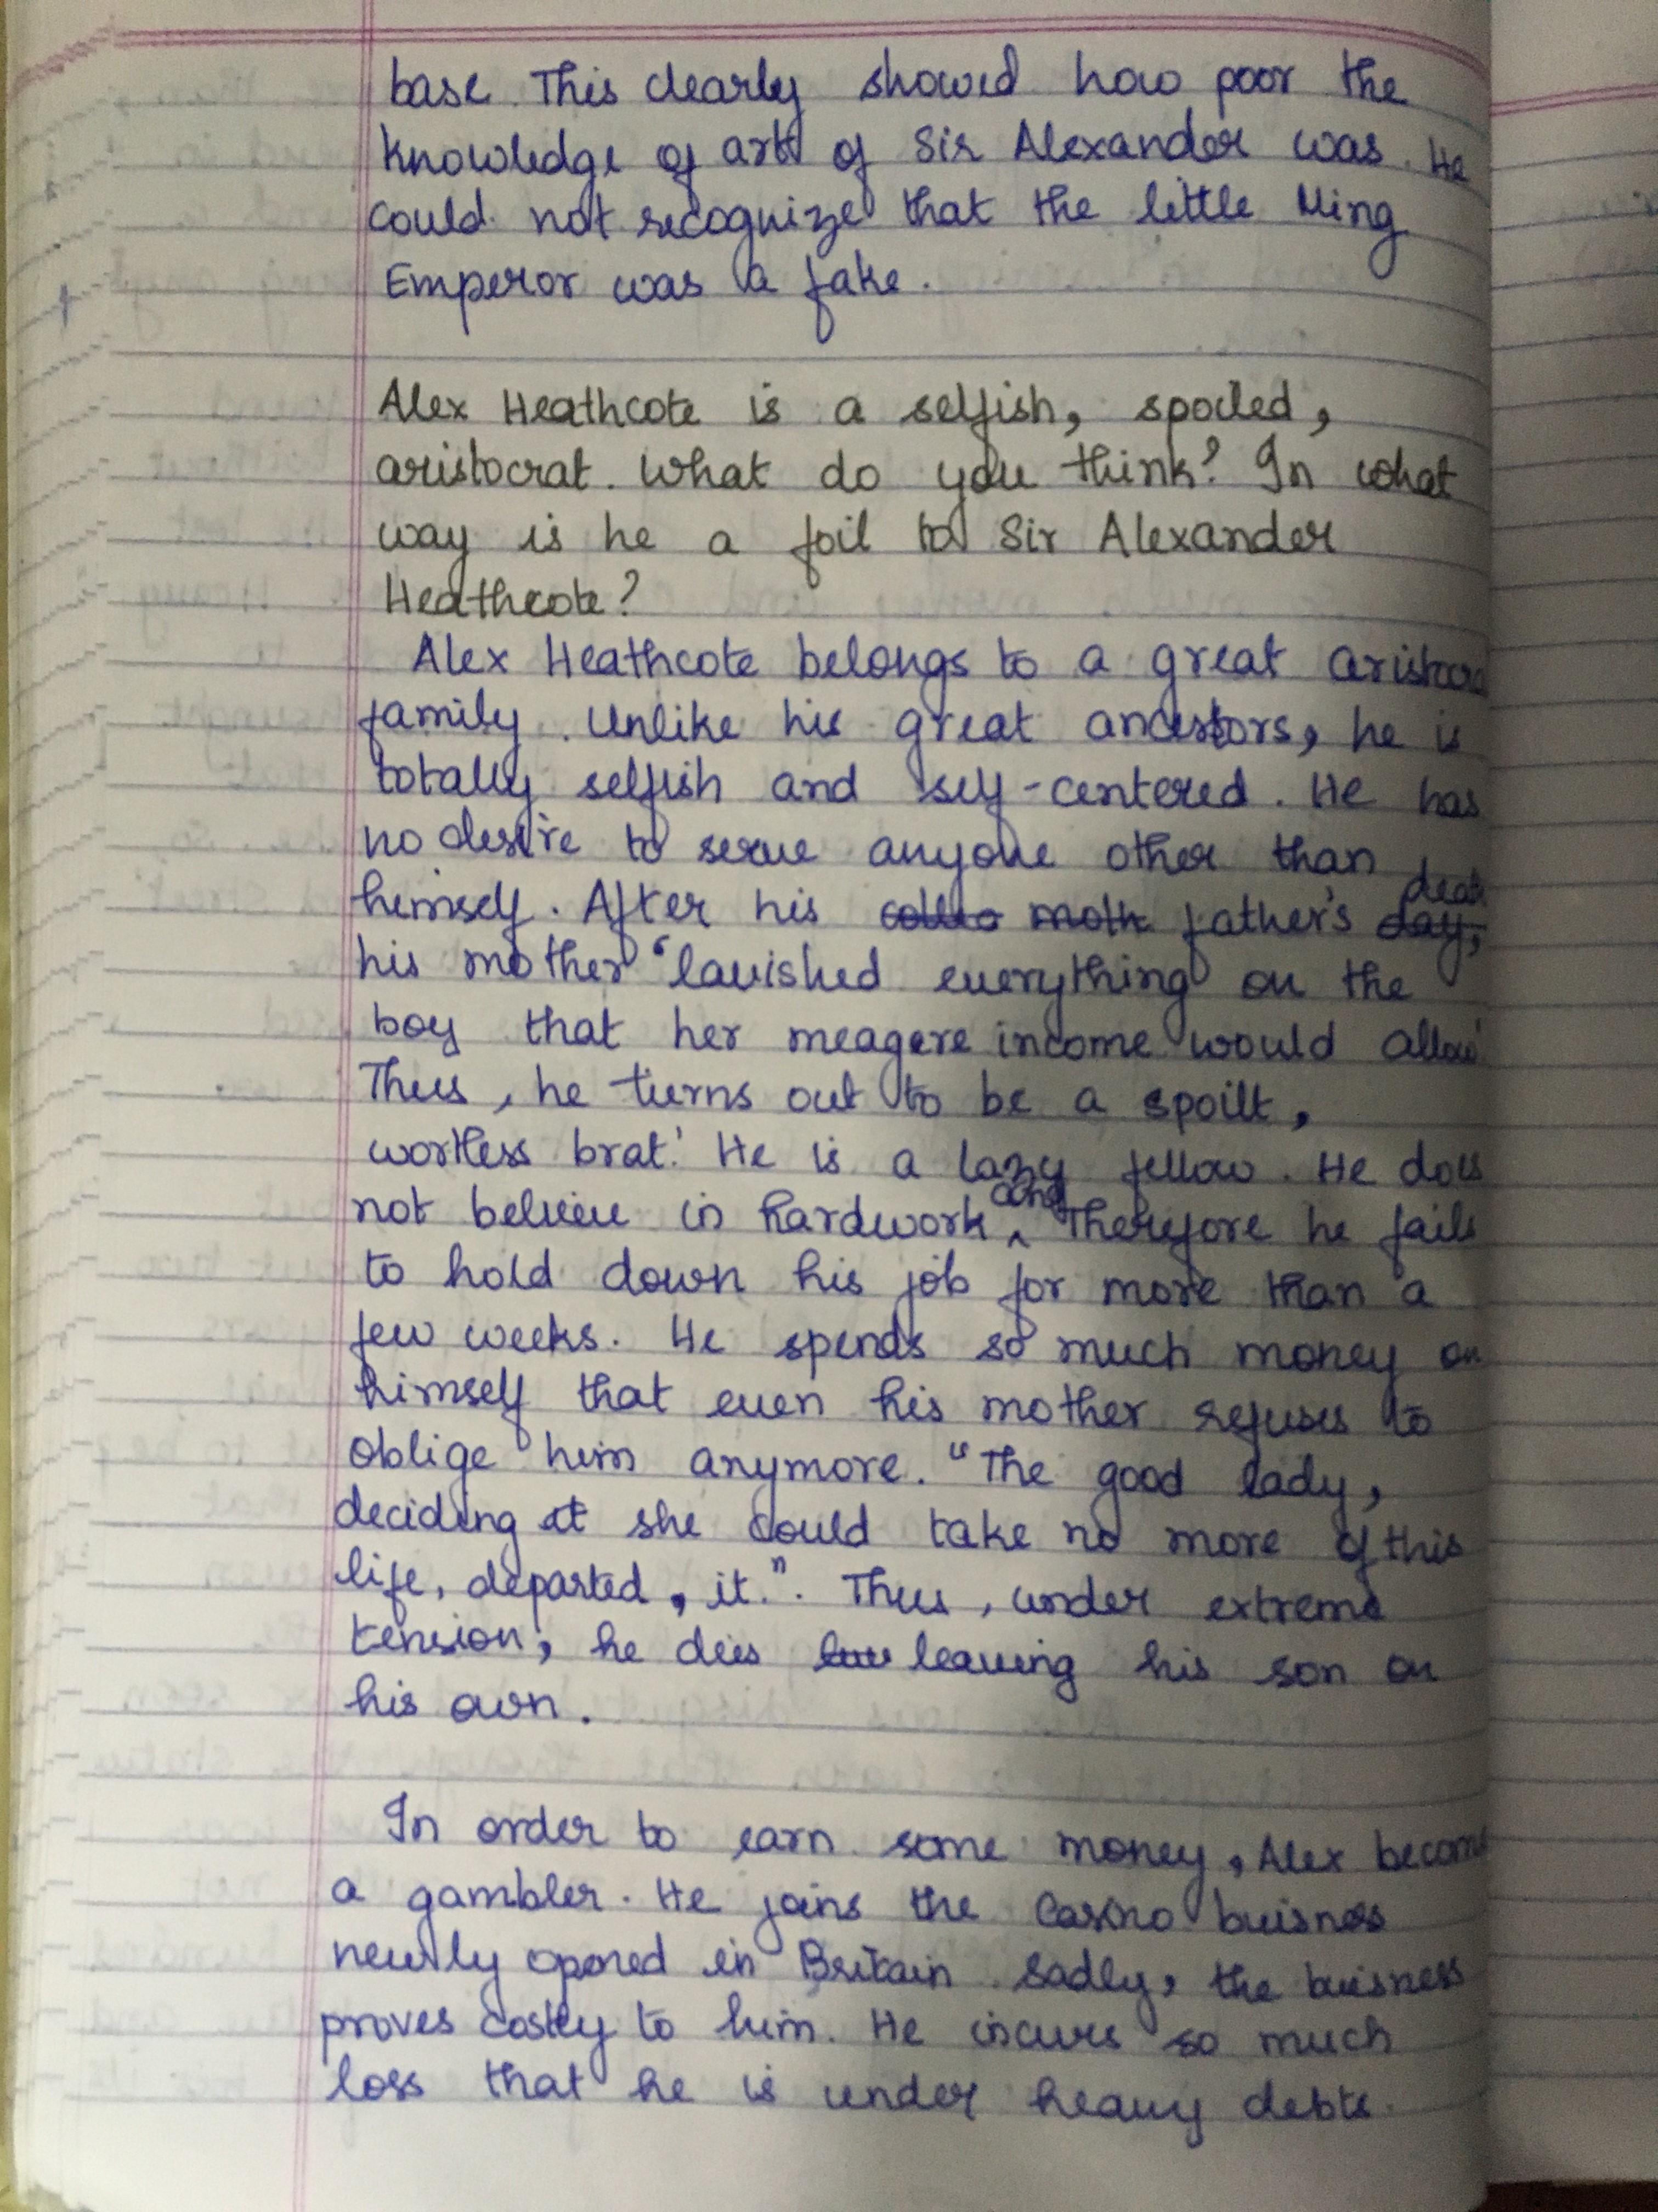 base. This clearly showed how poor the
knowledge of art of Sir Alexander was. He
could not recognize that the little Ming
Emperor was a fake.
Alex Heathcote is a selfish, spoiled,
aristocrat. What do you think? In what
way is he a foil to Sir Alexander
Heathcote?
Alex Heathcote belongs to a great
family. Unlike his great ancestors, he is
totally selfish and self-centered. He has
no desire to serve anyone other than
himself. After his father's
his mother 'lavished everything on the
boy that her meagere income would allow'
Thus, he turns out to be a spoilt,
wortless brat.' He is a lazy fellow. He does
not believe in hardwork and Therefore he fails
to hold down his job for more than a
few weeks. He spends so much money on
himself that even his mother refuses to
oblige him anymore. "The good lady,
deciding she could take no more of this
life, departed, it.". Thus, under extreme
tension, he dies leaving his son on
his own.
In order to earn some money, Alex
a gambler. He joins the Casino buisness
newly opened in Britain. Sadly, the buisness
proves costly to him. He incurs so much
loss that he is under heavy debts.